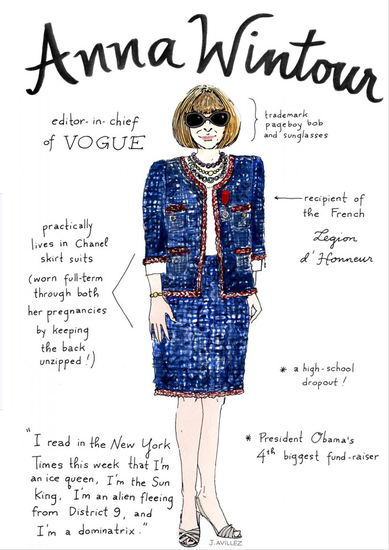 Anna Wintour
editor-in-chief
of VOGUE
trademark
pageboy bob
and sunglasses
recipient of
the French
Legion
d'Honneur
practically
lives in Chanel
skirt suits
(worn full-term
through both
her pregnancies
by keeping
the back
unzipped!)
* a high-school
dropout!
* President Obama's
4th biggest fund-raiser
"I read in the New York
Times this week that I'm
an ice queen, I'm the Sun
King, I'm an alien fleeing
from District 9, and
I'm a dominatrix."
J.AVILLEZ